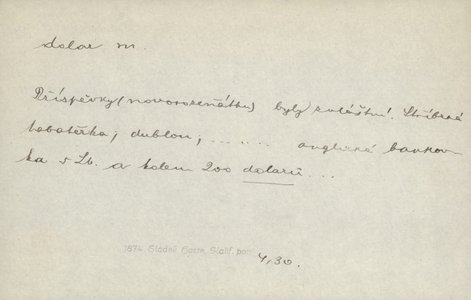 dolar m.
Příspěvky (novorozeňátku) byly zvláštní. Stříbrná
tabatěrka, dublon, ....... anglické bankov-
ka 5 Lb. a kolem 200 dolarů...
1874. Sládek Harte, Kalif. pov.
4,30.